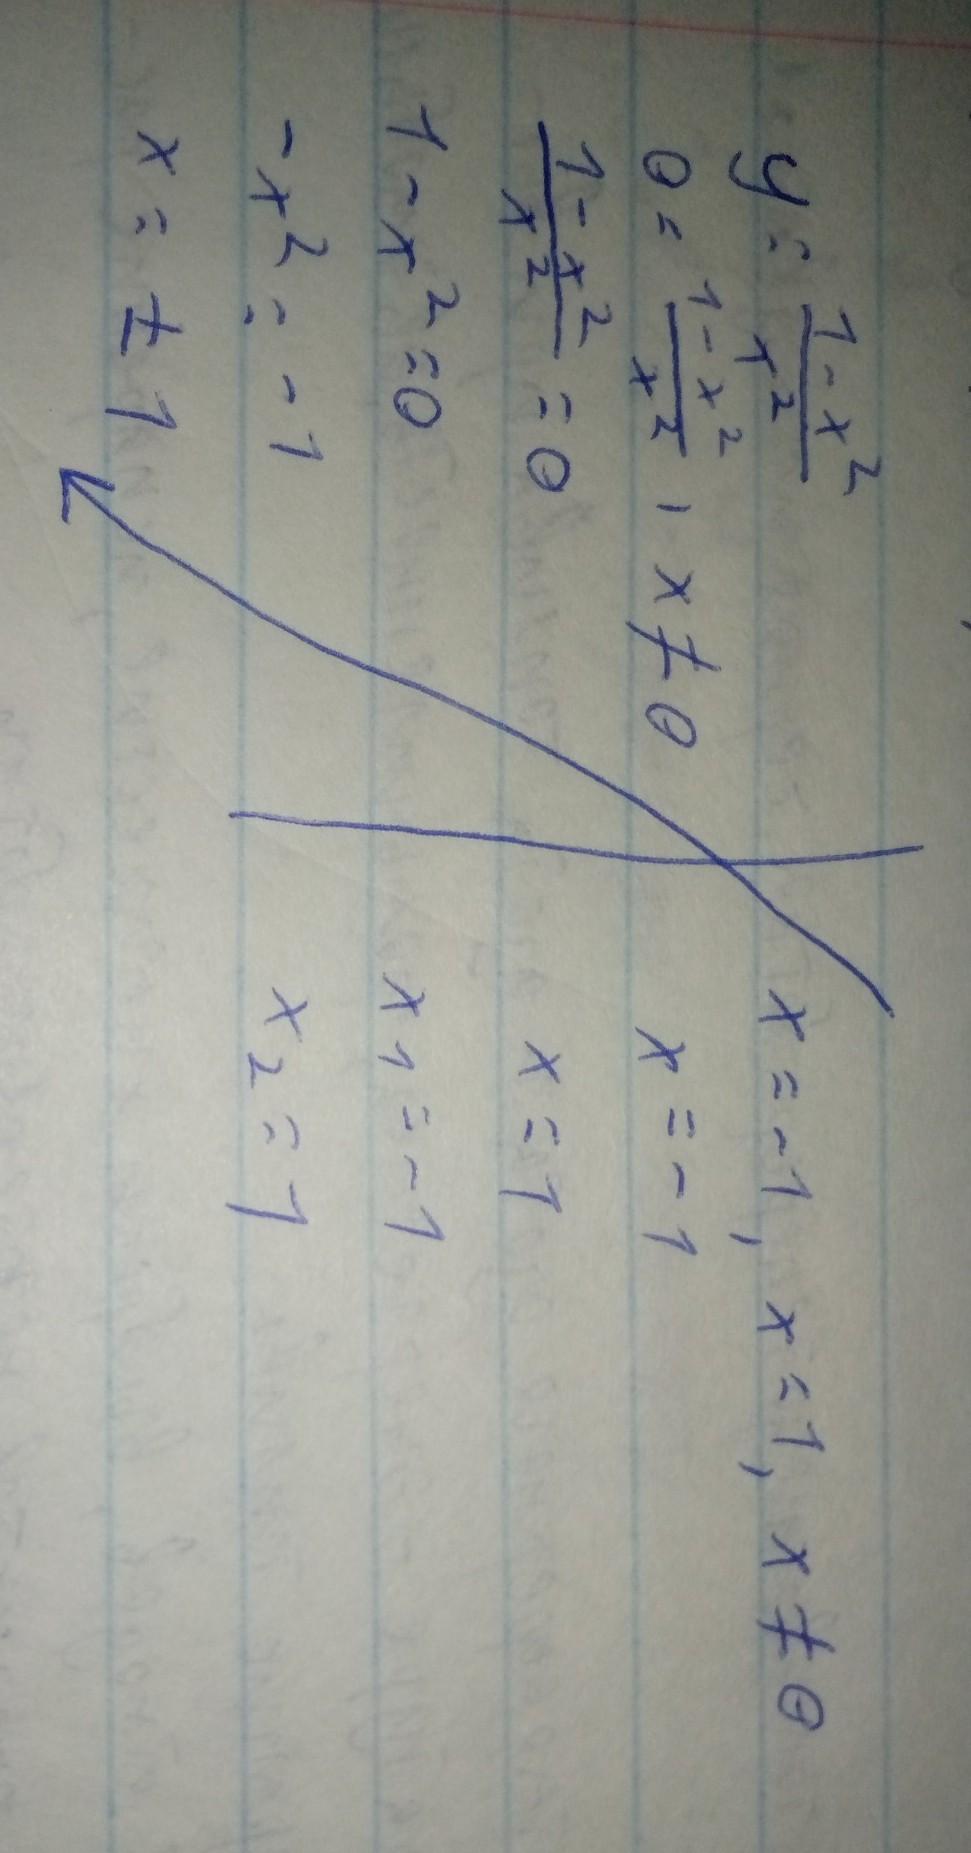 y = \frac{1-x^2}{x^2}
0 = \frac{1-x^2}{x^2}, x ≠ 0
\frac{1-x^2}{x^2} = 0
1 - x^2 = 0
-x^2 = -1
x = ± 1
x = -1, x = 1, x ≠ 0
x = -1
x = 1
x_1 = -1
x_2 = 1